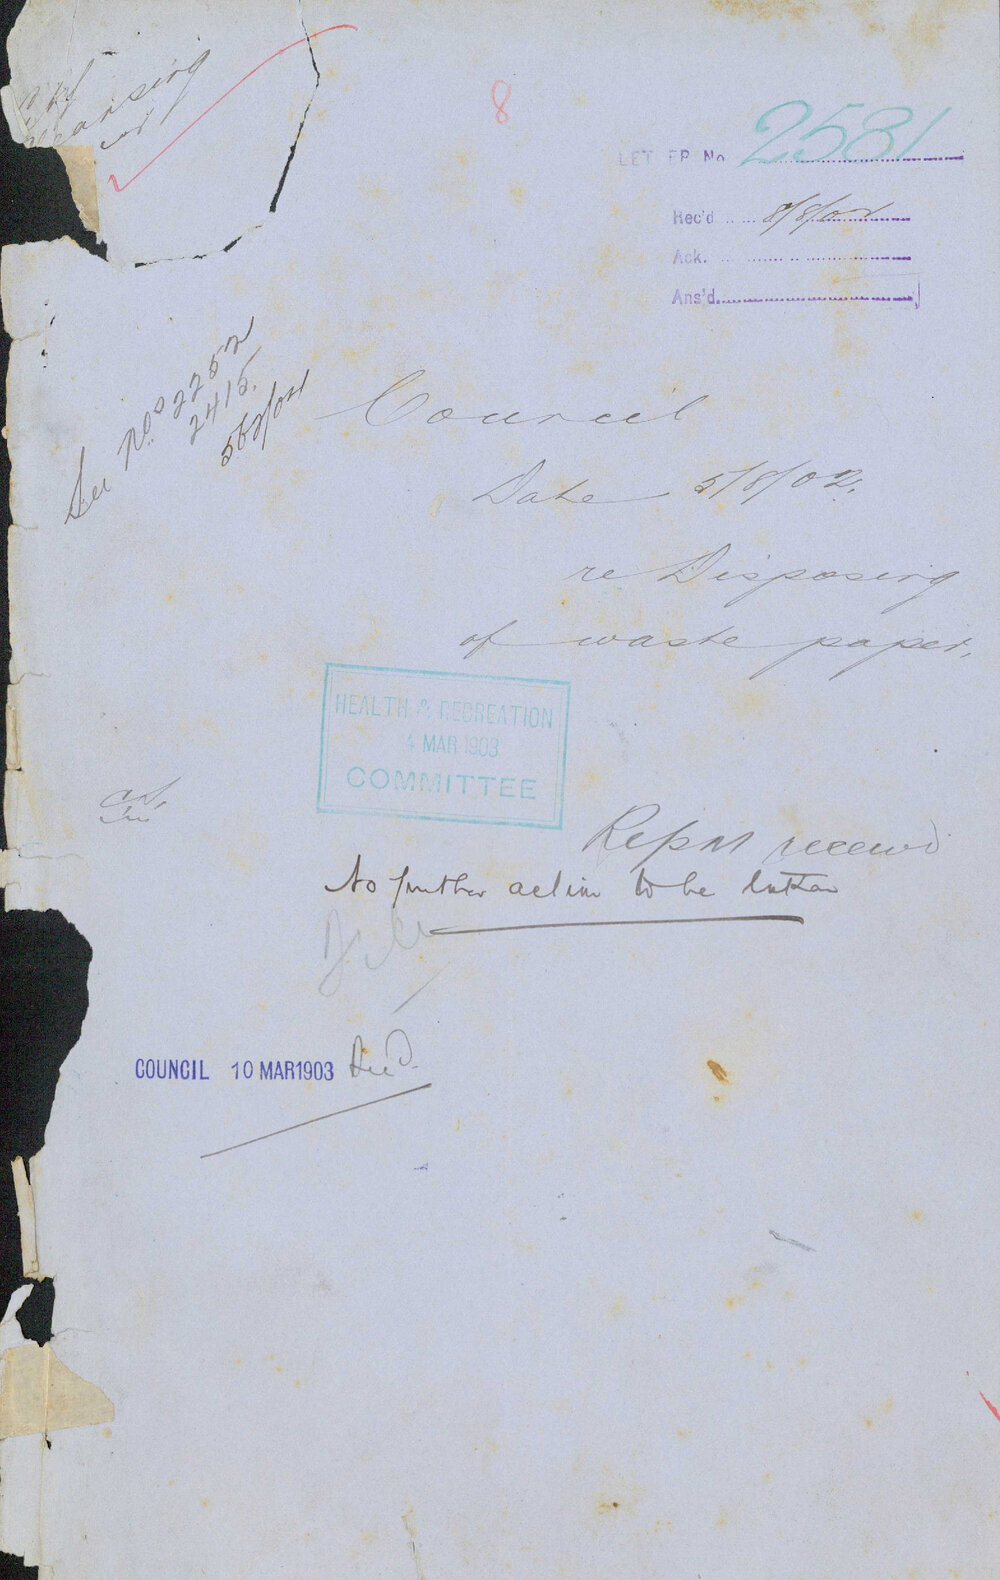 Cleansing
8
LETTER No 2581
Rec'd 8/8/02
Ack.
Ans'd
See Nos 2252
2415.
562/02
Council
Date 5/8/02.
re Disposing
of waste paper,
HEALTH & RECREATION
4 MAR 1903
COMMITTEE
Report received
No further action to be taken
File
COUNCIL 10 MAR 1903 Rec'd.